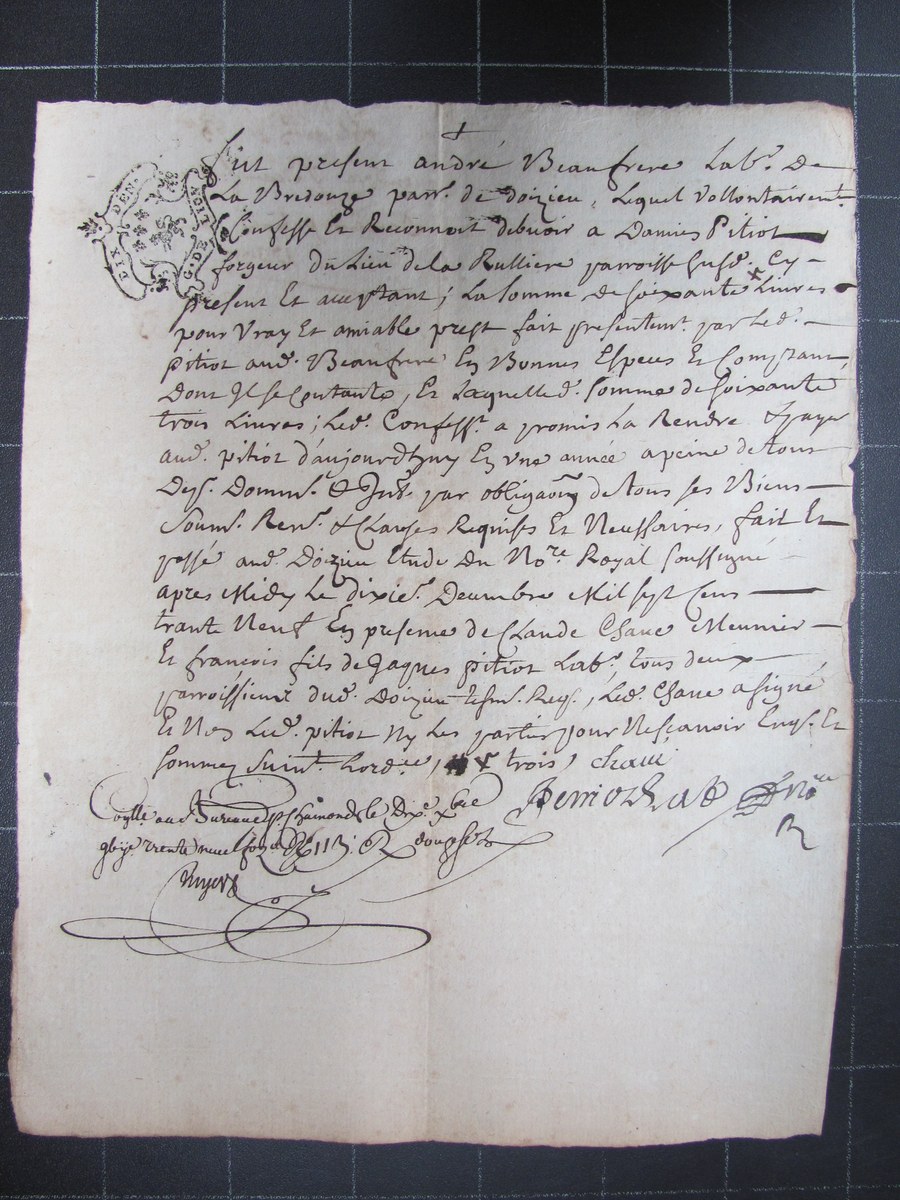 †
Fut present andré Beaufrere Labr. De
SIX DEN. G. DE LION
La Bredouze parr. de doizieu, Lequel Vollontairemt.
Confesse Et Reconnoit debvoir a Damien Pitiot
forgeur du Lieu de la Rulliere parroisse susd. Cy
present Et acceptant; La somme de soixante x Livres
pour Vray Et amiable prest fait presentemt. par Led.
pitiot aud. Beaufrere En Bonnes Especes Et Comptant
Dont Il se contante, Et Laquelle d. Somme de soixante
trois Livres; Led. Confesst. a promis La Rendre & payer
aud. pitiot d'aujourdhuy En une année a peine de tous
Desp. Domm. & Int. par obligaon de tous ses Biens
Soum. Ren. & Clauses Requises Et Necessaires, fait Et
passé aud. Doizieu Etude du Nore Royal soussigné
apres Midy Le dixie. Decembre Mil sept cens
trante Neuf En presence de Claude Chave Meunier
Et francois fils de Jaques pitiot Labr. tous deux
parroissiens dud. Doizieu tesm. Req., Led. Chave a signé
Et Non Led. pitiot Ny Les parties pour Ne sçavoir Enq. Et
sommez suivt. Lordce, x trois, chave
aud. Bureau de St chaimond le Dixe. xbre
trente neuf douze s.
Nore
R